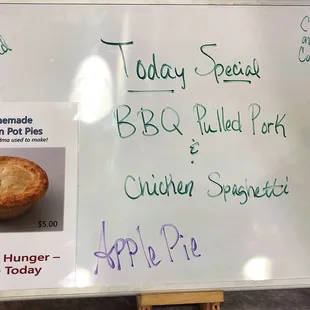 Today Special
BBQ Pulled Pork
&
Chicken Spaghetti
Apple Pie
Pot Pies
used to make!
$5.00
Hunger –
Today